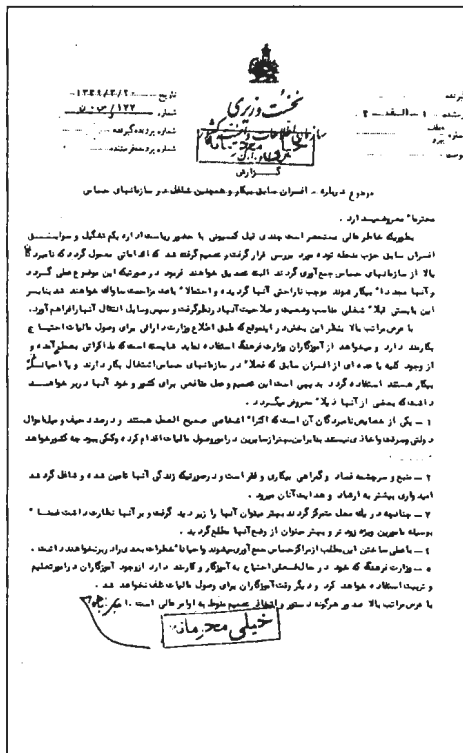 نخست وزیری
سازمان اطلاعات و امنیت کشور
خیلی محرمانه
تاریخ ۱۳۳۹/۳/۲۰
شماره ۱۲۲/
شماره پرونده گیرنده
شماره پرونده فرستنده
گیرنده
گزارش
موضوع درباره - افسران سابق بیکار و همچنین شاغل در سازمانهای حساس
محترما" معروض میدارد .
بطوریکه خاطر عالی مستحضر است چندی قبل کمیسیونی با حضور ریاست اداره یکم تشکیل و سوابق
افسران سابق حزب منحله توده مورد بررسی قرار گرفت و تصمیم گرفته شد که اقداماتی معمول گردد که نامبردگان
بالا از سازمانهای حساس جمع آوری گردند البته تصدیق خواهند فرمود در صورتیکه این موضوع عملی گردد
و آنها مجددا" بیکار شوند موجب ناراحتی آنها گردیده و احتمالا" باعث مزاحمت ساواک خواهند شد بنابر
این بایستی قبلا" شغلی مناسب وضعیت و صلاحیت آنها در نظر گرفت و سپس وسایل انتقال آنها را فراهم آورد.
با عرض مراتب بالا بنظر این بخش در اینموقع که طبق اطلاع وزارت دارائی برای وصول مالیات احتیاج
بکارمند دارد و میخواهد از آموزگاران وزارت فرهنگ استفاده نماید شایسته است که مذاکراتی بعمل آمده و
از وجود کلیه یا عده ای از افسران سابق که فعلا" در سازمانهای حساس اشتغال بکار دارند و یا احیانا"
بیکار هستند استفاده گردد بدیهی است این تصمیم و عمل منافعی برای کشور و خود آنها در بر خواهد
داشت که بعضی از آنها ذیلا" معروض میگردد .
۱ - یکی از خصایص نامبردگان آن است که اکثرا" اشخاصی صحیح العمل هستند و در صدد حیف و میل اموال
دولتی و سرقت و اخاذی نیستند بنابراین بهتر از سایرین در امور وصول مالیات اقدام کرده و کمکی ببودجه کشور خواهد
۲ - منبع و سرچشمه فساد و گمراهی بیکاری و فقر است و در صورتیکه زندگی آنها تامین شده و شاغل گردند
امیدواری بیشتر به ارشاد و هدایت آنان میرود .
۳ - چنانچه در یک محل متمرکز گردند بهتر میتوان آنها را زیر دید گرفت و بر آنها نظارت داشت ضمنا"
بوسیله مامورین ویژه زودتر و بهتر میتوان از وضع آنها مطلع گردید .
۴ - با عملی ساختن این مطلب از مراکز حساس جمع آوری میشوند و احیانا" خطرات بعدی را در بر نخواهند داشت .
۵ - وزارت فرهنگ که خود در حال فعلی احتیاج به آموزگار و کارمند دارد از وجود آموزگاران در امور تعلیم
و تربیت استفاده خواهد کرد و دیگر وقت آموزگاران برای وصول مالیات تلف نخواهد شد .
با عرض مراتب بالا صدور هرگونه دستور و اتخاذ تصمیم منوط به اوامر عالی است .
خیلی محرمانه